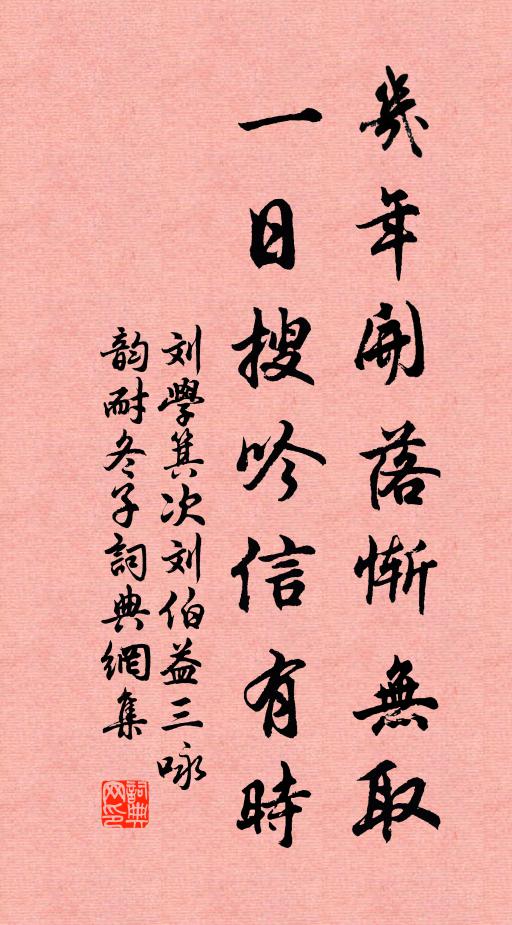 幾年開落慚無取
一日搜吟信有時
刘學箕次刘伯益三咏
韵耐冬子詞典網集
詞典网印